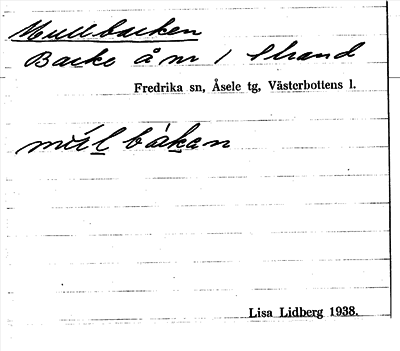 Mullbacken
Backe å nr 1 Strand
Fredrika sn, Åsele tg, Västerbottens l.
mùl̲ bákan
Lisa Lidberg 1938.